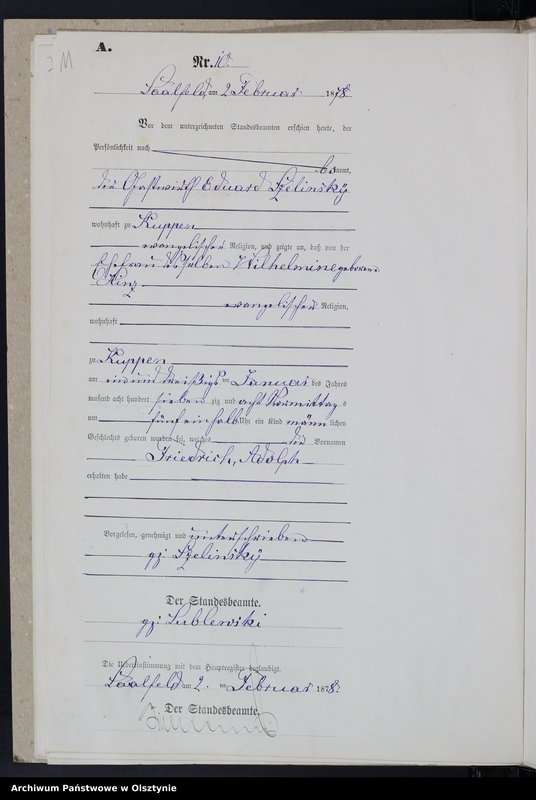 A.
Nr. 10.
Saalfeld, am 2 Februar 1878.
Vor dem unterzeichneten Standesbeamten erschien heute, der
Persönlichkeit nach
kannt,
der Gastwirth Eduard Szelinsky
wohnhaft zu Kuppen
evangelischer Religion, und zeigte an, daß von der
Ehefrau desselben Wilhelmine geborene
Hinz
evangelischer Religion,
wohnhaft
zu Kuppen
am ein und dreißigs ten Januar des Jahres
tausend acht hundert sieben zig und acht Vormittag s
um fünf einhalb Uhr ein Kind männ lichen
Geschlechts geboren worden sei, welches die Vornamen
Friedrich, Adolph
erhalten habe
Vorgelesen, genehmigt und unterschrieben
gz: Szelinsky
Der Standesbeamte.
gz: Lublewski
Die Uebereinstimmung mit dem Hauptregister beglaubigt.
Saalfeld am 2. ten Februar 1878.
Der Standesbeamte.
Archiwum Państwowe w Olsztynie